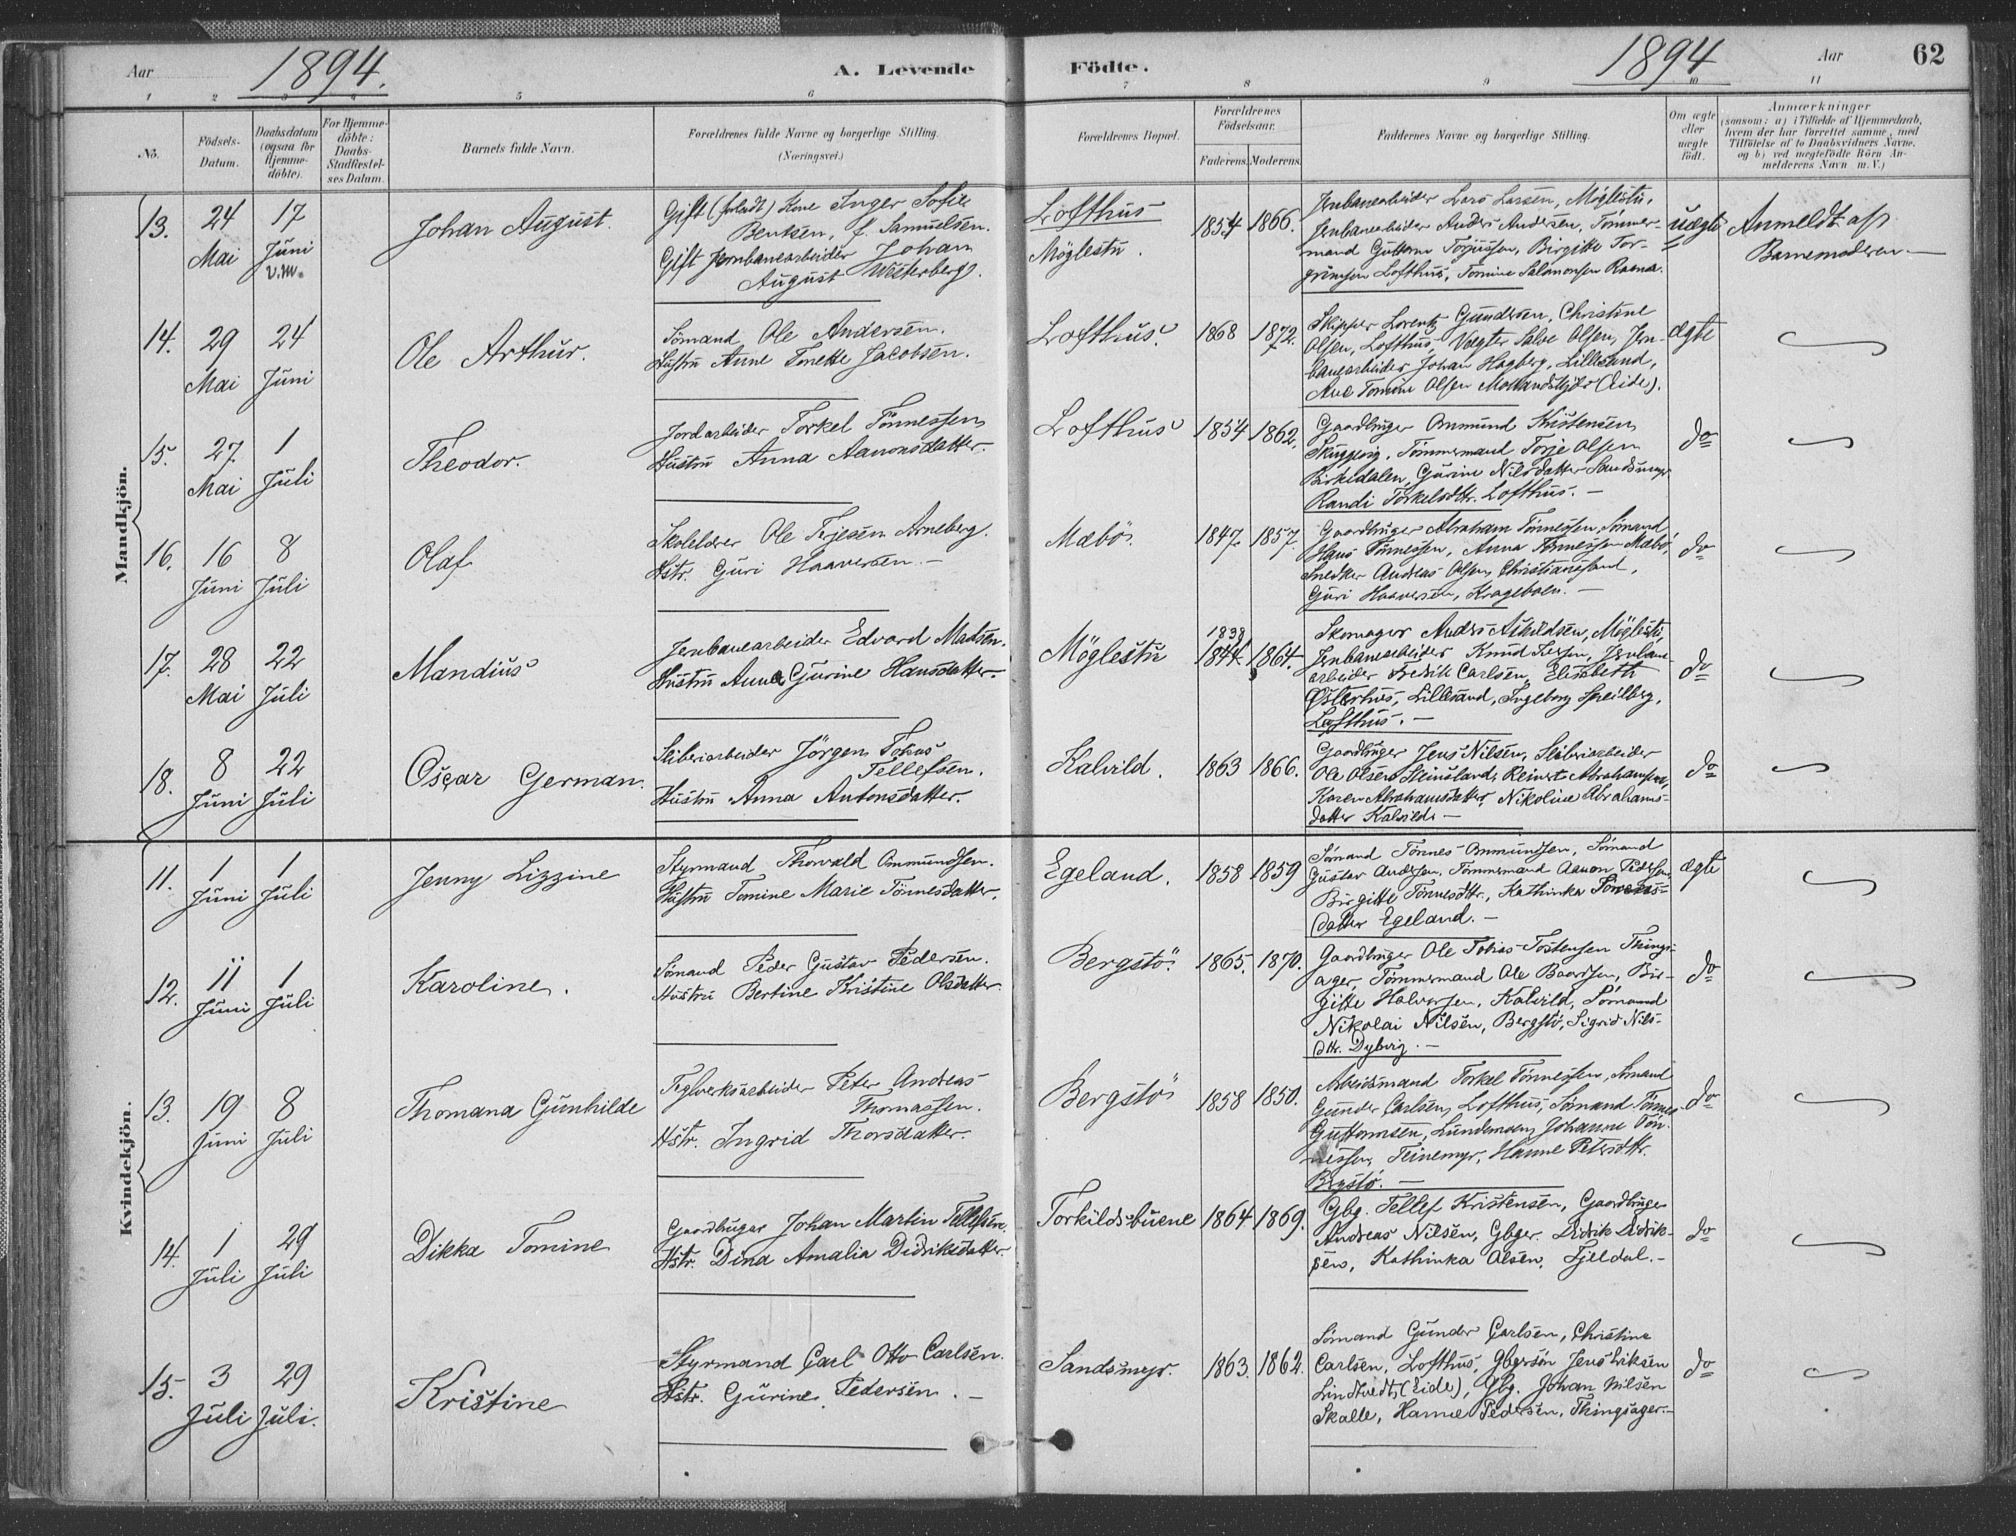 Aar 1894. A. Levende Födte. 1894 Aar 62
1 2 3 4 5 6 7 8 9 10 11
No.
Födsels-
Datum.
Daabsdatum
(ogsaa for
Hjemme-
döbte).
For Hjemme-
döbte:
Daabs-
Stadfæstel-
ses Datum.
Barnets fulde Navn.
Forældrenes fulde Navne og borgerlige Stilling.
(Næringsvei.)
Forældrenes Bopæl.
Forældrenes
Födselsaar.
Faderens. Moderens.
Faddernes Navne og borgerlige Stilling.
Om ægte
eller
uægte
födt.
Anmærkninger
(saasom: a) i Tilfælde af Hjemmedaab,
hvem der har forrettet samme, med
Tilföielse af to Daabsvidners Navne,
og b) ved uægtefödte Börn An-
melderens Navn m. V.)
Mandkjön.
13.
24
Mai
17
Juni
v.m.
Johan August.
Gift Kone Inger Sofie
Bentsen, f. Samuelsen.
Gift Jernbanearbeider Johan
August Westerberg.
Lofthus
Möglestu.
1854 1866.
Jernbanearbeider Lars Larsen, Möglestu,
Jernbanearbeider Anders Andersen, Tömmer-
mand Guttorm Torjussen, Birgitte Tor-
grimsen Lofthus, Tomine Salamonsen
uægte
Anmeldt af
Barnemoderen.—
14.
29
Mai
24
Juni
Ole Arthur.
Sömand Ole Andersen.
Hustru Anne Tonette Jacobsen.
Lofthus.
1868 1872.
Skipper Lorentz Gundersen, Christine
Olsen, Lofthus, Vægter Salve Olsen, Jern-
banearbeider Johan Hagberg, Lillesand,
Ane Tomine Olsen (Eide).
ægte
15.
27.
Mai
1
Juli
Theodor.
Jordarbeider Torkel Tönnessen
Hustru Anna Aanonsdatter.
Lofthus
1854 1862.
Gaardbruger Ommund Kristensen
Tömmermand Torje Olsen
Birkedalen, Gurine Nilsdatter Sandsmyr.
Randi Torkelsdttr. Lofthus.—
do
16.
16
Juni
8
Juli
Olaf
Skolelærer Ole Terjesen Arneberg.
Hstr. Guri Haaversen.—
Mæbö.
1847. 1857.
Gaardbruger Abraham Tönnessen, Sömand
Hans Tönnessen, Anna Tönnessen Mæbö,
Snedker Andreas Olsen, Christianssand,
Guri Haaversen, Krageboen.—
do
17.
28
Mai
22
Juli
Mandius
Jernbanearbeider Edvard Madsen.
Hustru Anna Gurine Hansdatter.
Möglestu
1838
1844. 1864.
Skomager Anders Möglestu,
Jernbanearbeider Knud Jernbane-
arbeider Fredrik Carlsen, Elisabeth
Østerhus, Lillesand, Ingeborg Speilberg,
Lofthus.—
do
18.
8
Juni
22
Juli
Oscar German.
Sliberiarbeider Jörgen Tobias
Tellefsen.
Hustru Anna Antonsdatter.
Kalvild.
1863 1866.
Gaardbruger Jens Nilsen, Sliberiarbeider
Ole Olsen Steinsland, Reinert Abrahamsen,
Karen Abrahamsdatter, Nikoline Abrahams-
datter Kalvild.—
do
Kvindekjön.
11.
1
Juni
1
Juli
Jenny Lizzine
Styrmand Thorvald Ommundsen.
Hustru Tomine Marie Tönnesdatter.
Egeland.
1858 1859
Sömand Tönnes Ommundsen, Sömand
Gustav Andersen, Tömmermand Aanon Pedersen,
Birgitte Tönnesdttr., Kathinka
datter Egeland.—
ægte
12.
11
Juni
1
Juli
Karoline.
Sömand Peder Gustav Pedersen.
Hustru Bertine Kristine Olsdatter.
Bergstö.
1865. 1870.
Gaardbruger Ole Tobias Tostensen Things-
ager, Tömmermand Ole Baardsen, Bir-
gitte Halvorsen, Kalvild, Sömand
Nikolai Nilsen, Bergstö, Sigrid Nils-
dttr. Dybvig.—
do
13.
19
Juni
8
Juli
Thomana Gunhilde
Teglverksarbeider Peter Andreas
Thomassen.
Hstr. Ingrid Thorsdatter.
Bergstö
1858 1850.
Arbeidsmand Torkel Tönnessen, Sömand
Gunder Carlsen, Lofthus, Sömand Tönnes
Guttormsen, Johanne Tön-
nessen, Teinemyr, Hanne Petersdttr.
Bergstö.—
do
14.
1
Juli
29
Juli
Dikka Tomine
Gaardbruger Johan Martin Tellefsen.
Hstr. Dina Amalia Didriksdatter.
Torkildsbuene
1864 1869.
Gbg. Tellef Kristensen, Gaardbruger
Andreas Nilsen, Gbger. Didrik Didrik-
sen, Kathinka Olsen, Tjeldal.—
do
15.
3
Juli
29
Juli.
Kristine
Styrmand Carl Otto Carlsen.
Hstr. Gurine Pedersen.—
Sandsmyr.
1863. 1862.
Sömand Gunder Carlsen, Christine
Carlsen, Lofthus, Gbgersön Jens Eriksen
Lindtvedt, (Eide), Gbg. Johan Nilsen
Skalle, Hanne Pedersen, Thingsager.—
do